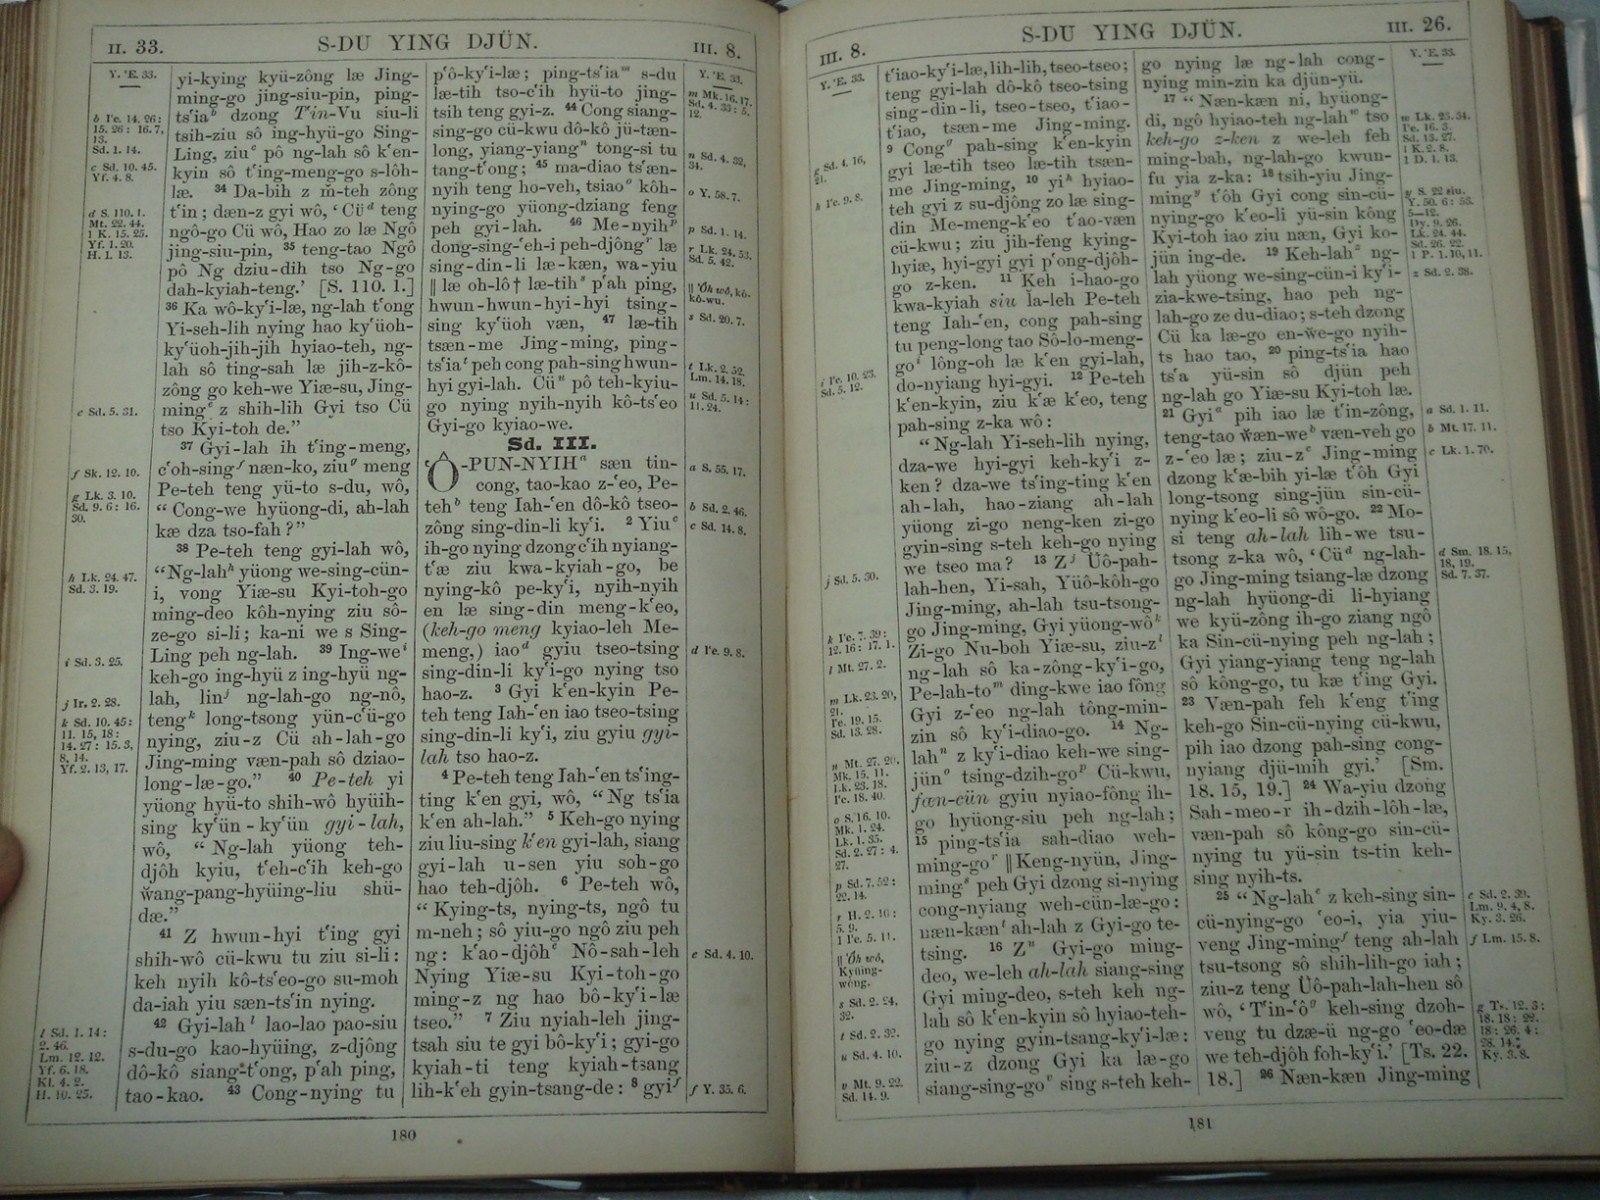 II. 33.
S-DU YING DJÜN.
III. 8.
Y. 'E. 33.
b Fe. 14. 26:
15. 26: 16. 7,
13.
Sd. 1. 14.
c Sd. 10. 45.
Yf. 4. 8.
d S. 110. 1.
Mt. 22. 44.
1 K. 15. 25.
Yf. 1. 20.
H. 1. 13.
e Sd. 5. 31.
f Sk. 12. 10.
g Lk. 3. 10.
Sd. 9. 6: 16.
30.
h Lk. 24. 47.
Sd. 3. 19.
i Sd. 3. 25.
j Ir. 2. 28.
k Sd. 10. 45:
11. 15, 18:
14. 27: 15. 3,
8, 14.
Yf. 2. 13, 17.
l Sd. 1. 14:
2. 46.
Lm. 12. 12.
Yf. 6. 18.
Kl. 4. 2.
H. 10. 25.
yi-kying kyü-zông læ Jing-
ming-go jing-siu-pin, ping-
ts'iaᵇ dzong T'in-Vu siu-li
tsih-ziu sô ing-hyü-go Sing-
Ling, ziuᶜ pô ng-lah sô k'en-
kyin sô t'ing-meng-go s-lôh-
læ. ³⁴ Da-bih z m̄-teh zông
t'in; dæn-z gyi wô, ‘Cüᵈ teng
ngô-go Cü wô, Hao zo læ Ngô
jing-siu-pin, ³⁵ teng-tao Ngô
pô Ng dziu-dih tso Ng-go
dah-kyiah-teng.’ [S. 110. 1.]
³⁶ Ka wô-ky'i-læ, ng-lah t'ong
Yi-seh-lih nying hao ky'üoh-
ky'üoh-jih-jih hyiao-teh, ng-
lah sô ting-sah læ jih-z-kô-
zông go keh-we Yiæ-su, Jing-
mingᵉ z shih-lih Gyi tso Cü
tso Kyi-toh de.”
³⁷ Gyi-lah ih t'ing-meng,
c'oh-singᶠ næn-ko, ziuᵍ meng
Pe-teh teng yü-to s-du, wô,
“Cong-we hyüong-di, ah-lah
kæ dza tso-fah?”
³⁸ Pe-teh teng gyi-lah wô,
“Ng-lahʰ yüong we-sing-cün-
i, vong Yiæ-su Kyi-toh-go
ming-deo kôh-nying ziu sô-
ze-go si-li; ka-ni we s Sing-
Ling peh ng-lah. ³⁹ Ing-weⁱ
keh-go ing-hyü z ing-hyü ng-
lah, linʲ ng-lah-go ng-nô,
tengᵏ long-tsong yün-c'ü-go
nying, ziu-z Cü ah-lah-go
Jing-ming væn-pah sô dziao-
long-læ-go.” ⁴⁰ Pe-teh yi
yüong hyü-to shih-wô hyüih-
sing ky'ün-ky'ün gyi-lah,
wô, “Ng-lah yüong teh-
djôh kyiu, t'eh-c'ih keh-go
w̌ang-pang-hyüing-liu shü-
dæ.”
⁴¹ Z hwun-hyi t'ing gyi
shih-wô cü-kwu tu ziu si-li:
keh nyih kô-ts'eo-go su-moh
da-iah yiu sæn-ts'in nying.
⁴² Gyi-lahˡ lao-lao pao-siu
s-du-go kao-hyüing, z-djông
dô-kô siang-t'ong, p'ah ping,
tao-kao. ⁴³ Cong-nying tu
p'ô-ky'i-læ; ping-ts'iaᵐ s-du
læ-tih tso-c'ih hyü-to jing-
tsih teng gyi-z. ⁴⁴ Cong siang-
sing-go cü-kwu dô-kô jü-tæn-
long, yiang-yiangⁿ tong-si tu
tang-t'ong; ⁴⁵ ma-diao ts'æn-
nyih teng ho-veh, tsiaoᵒ kôh-
nying-go yüong-dziang feng
peh gyi-lah. ⁴⁶ Me-nyihᵖ
dong-sing-'eh-i peh-djôngʳ læ
sing-din-li læ-kæn, wa-yiu
‖ læ oh-lô† læ-tihˢ p'ah ping,
hwun-hwun-hyi-hyi tsing-
sing ky'üoh væn, ⁴⁷ læ-tih
tsæn-me Jing-ming, ping-
ts'iaᵗ peh cong pah-sing hwun-
hyi gyi-lah. Cüᵘ pô teh-kyiu-
go nying nyih-nyih kô-ts'eo
Gyi-go kyiao-we.
Sd. III.
‘Ô-PUN-NYIHᵃ sæn tin-
cong, tao-kao z-'eo, Pe-
tehᵇ teng Iah-'en dô-kô tseo-
zông sing-din-li ky'i. ² Yiuᶜ
ih-go nying dzong c'ih nyiang-
t'æ ziu kwa-kyiah-go, be
nying-kô pe-ky'i, nyih-nyih
en læ sing-din meng-k'eo,
(keh-go meng kyiao-leh Me-
meng,) iaoᵈ gyiu tseo-tsing
sing-din-li ky'i-go nying tso
hao-z. ³ Gyi k'en-kyin Pe-
teh teng Iah-'en iao tseo-tsing
sing-din-li ky'i, ziu gyiu gyi-
lah tso hao-z.
⁴ Pe-teh teng Iah-'en ts'ing-
ting k'en gyi, wô, “Ng ts'ia
k'en ah-lah.” ⁵ Keh-go nying
ziu liu-sing k'en gyi-lah, siang
gyi-lah u-sen yiu soh-go
hao teh-djôh. ⁶ Pe-teh wô,
“Kying-ts, nying-ts, ngô tu
m-neh; sô yiu-go ngô ziu peh
ng: k'ao-djôhᵉ Nô-sah-leh
Nying Yiæ-su Kyi-toh-go
ming-z ng hao bô-ky'i-læ
tseo.” ⁷ Ziu nyiah-leh jing-
tsah siu te gyi bô-ky'i; gyi-go
kyiah-ti teng kyiah-tsang
lih-k'eh gyin-tsang-de: ⁸ gyiᶠ
Y. 'E. 33.
m Mk. 16. 17.
Sd. 4. 33: 5.
12.
n Sd. 4. 32,
34.
o Y. 58. 7.
p Sd. 1. 14.
r Lk. 24. 53.
Sd. 5. 42.
‖ 'Ôh wô, kô-
kô-wu.
s Sd. 20. 7.
t Lk. 2. 52.
Lm. 14. 18.
u Sd. 5. 14:
11. 24.
a S. 55. 17.
b Sd. 2. 46.
c Sd. 14. 8.
d Fe. 9. 8.
e Sd. 4. 10.
f Y. 35. 6.
180
III. 8.
S-DU YING DJÜN.
III. 26.
Y. 'E. 33.
g Sd. 4. 16,
21.
h Fe. 9. 8.
i Fe. 10. 23.
Sd. 5. 12.
j Sd. 5. 30.
k Fe. 7. 39:
12. 16: 17. 1.
l Mt. 27. 2.
m Lk. 23. 20,
21.
Fe. 19. 15.
Sd. 13. 28.
n Mt. 27. 20.
Mk. 15. 11.
Lk. 23. 18.
Fe. 18. 40.
o S. 16. 10.
Mk. 1. 24.
Lk. 1. 35.
Sd. 2. 27: 4.
27.
p Sd. 7. 52:
22. 14.
r H. 2. 10:
5. 9.
1 Fe. 5. 11.
‖ 'Ôh wô,
Kyüing-
wông.
s Sd. 2. 24,
32.
t Sd. 2. 32.
u Sd. 4. 10.
v Mt. 9. 22.
Sd. 14. 9.
t'iao-ky'i-læ, lih-lih, tseo-tseo;
teng gyi-lah dô-kô tseo-tsing
sing-din-li, tseo-tseo, t'iao-
t'iao, tsæn-me Jing-ming.
⁹ Congᵍ pah-sing k'en-kyin
gyi læ-tih tseo læ-tih tsæn-
me Jing-ming, ¹⁰ yiʰ hyiao-
teh gyi z su-djông zo læ sing-
din Me-meng-k'eo t'ao-væn
cü-kwu; ziu jih-feng kying-
hyiæ, hyi-gyi gyi p'ong-djôh-
go z-ken. ¹¹ Keh i-hao-go
kwa-kyiah siu la-leh Pe-teh
teng Iah-'en, cong pah-sing
tu peng-long tao Sô-lo-meng-
goⁱ lông-oh læ k'en gyi-lah,
do-nyiang hyi-gyi. ¹² Pe-teh
k'en-kyin, ziu k'æ k'eo, teng
pah-sing z-ka wô:
“Ng-lah Yi-seh-lih nying,
dza-we hyi-gyi keh-ky'i z-
ken? dza-we ts'ing-ting k'en
ah-lah, hao-ziang ah-lah
yüong zi-go neng-ken zi-go
gyin-sing s-teh keh-go nying
we tseo ma? ¹³ Zʲ Üô-pah-
lah-hen, Yi-sah, Yüô-kôh-go
Jing-ming, ah-lah tsu-tsong-
go Jing-ming, Gyi yüong-wôᵏ
Zi-go Nu-boh Yiæ-su, ziu-zˡ
ng-lah sô ka-zông-ky'i-go,
Pe-lah-toᵐ ding-kwe iao fông
Gyi z-'eo ng-lah tông-min-
zin sô ky'i-diao-go. ¹⁴ Ng-
lahⁿ z ky'i-diao keh-we sing-
jünᵒ tsing-dzih-goᵖ Cü-kwu,
fæn-cün gyiu nyiao-fông ih-
go hyüong-siu peh ng-lah;
¹⁵ ping-ts'ia sah-diao weh-
ming-goʳ ‖ Keng-nyün, Jing-
mingˢ peh Gyi dzong si-nying
cong-nyiang weh-cün-læ-go:
næn-kænᵗ ah-lah z Gyi-go te-
tsing. ¹⁶ Zᵘ Gyi-go ming-
deo, we-leh ah-lah siang-sing
Gyi ming-deo, s-teh keh ng-
lah sô k'en-kyin sô hyiao-teh-
go nying gyin-tsang-ky'i-læ:
ziu-z dzong Gyi ka læ-go
siang-sing-goᵛ sing s-teh keh-
go nying læ ng-lah cong-
nying min-zin ka djün-yü.
¹⁷ “Næn-kæn ni, hyüong-
di, ngô hyiao-teh ng-lahʷ tso
keh-go z-ken z we-leh feh
ming-bah, ng-lah-go kwun-
fu yia z-ka: ¹⁸ tsih-yiu Jing-
mingʸ t'ôh Gyi cong sin-cü-
nying-go k'eo-li yü-sin kông
Kyi-toh iao ziu næn, Gyi ko-
jün ing-de. ¹⁹ Keh-lahᶻ ng-
lah yüong we-sing-cün-i ky'i-
zia-kwe-tsing, hao peh ng-
lah-go ze du-diao; s-teh dzong
Cü ka læ-go en-w̌e-go nyih-
ts hao tao, ²⁰ ping-ts'ia hao
ts'a yü-sin sô djün peh
ng-lah go Yiæ-su Kyi-toh læ.
²¹ Gyiᵃ pih iao læ t'in-zông,
teng-tao w̌æn-weᵇ væn-veh go
z-'eo læ; ziu-zᶜ Jing-ming
dzong k'æ-bih yi-læ t'ôh Gyi
long-tsong sing-jün sin-cü-
nying k'eo-li sô wô-go. ²² Mo-
si teng ah-lah lih-we tsu-
tsong z-ka wô, ‘Cüᵈ ng-lah-
go Jing-ming tsiang-læ dzong
ng-lah hyüong-di li-hyiang
we kyü-zông ih-go ziang ngô
ka Sin-cü-nying peh ng-lah;
Gyi yiang-yiang teng ng-lah
sô kông-go, tu kæ t'ing Gyi.
²³ Væn-pah feh k'eng t'ing
keh-go Sin-cü-nying cü-kwu,
pih iao dzong pah-sing cong-
nyiang djü-mih gyi.’ [Sm.
18. 15, 19.] ²⁴ Wa-yiu dzong
Sah-meo-r ih-dzih-lôh-læ,
væn-pah sô kông-go sin-cü-
nying tu yü-sin ts-tin keh-
sing nyih-ts.
²⁵ “Ng-lahᵉ z keh-sing sin-
cü-nying-go 'eo-i, yia yiu-
veng Jing-mingᶠ teng ah-lah
tsu-tsong sô shih-lih-go iah;
ziu-z teng Üô-pah-lah-hen sô
wô, ‘T'in-'ôᵍ keh-sing dzoh-
veng tu dzæ-ü ng-go 'eo-dæ
we teh-djôh foh-ky'i.’ [Ts. 22.
18.] ²⁶ Næn-kæn Jing-ming
Y. 'E. 33.
w Lk. 23. 34.
Fe. 16. 3.
Sd. 13. 27.
1 K. 2. 8.
1 D. 1. 13.
y S. 22 siu.
Y. 50. 6: 53.
5—12.
Dy. 9. 26.
Lk. 24. 44.
Sd. 26. 22.
1 P. 1. 10, 11.
z Sd. 2. 38.
a Sd. 1. 11.
b Mt. 17. 11.
c Lk. 1. 70.
d Sm. 18. 15,
18, 19.
Sd. 7. 37.
e Sd. 2. 39.
Lm. 9. 4, 8.
Ky. 3. 26.
f Lm. 15. 8.
g Ts. 12. 3:
18. 18: 22.
18: 26. 4:
28. 14.
Ky. 3. 8.
181